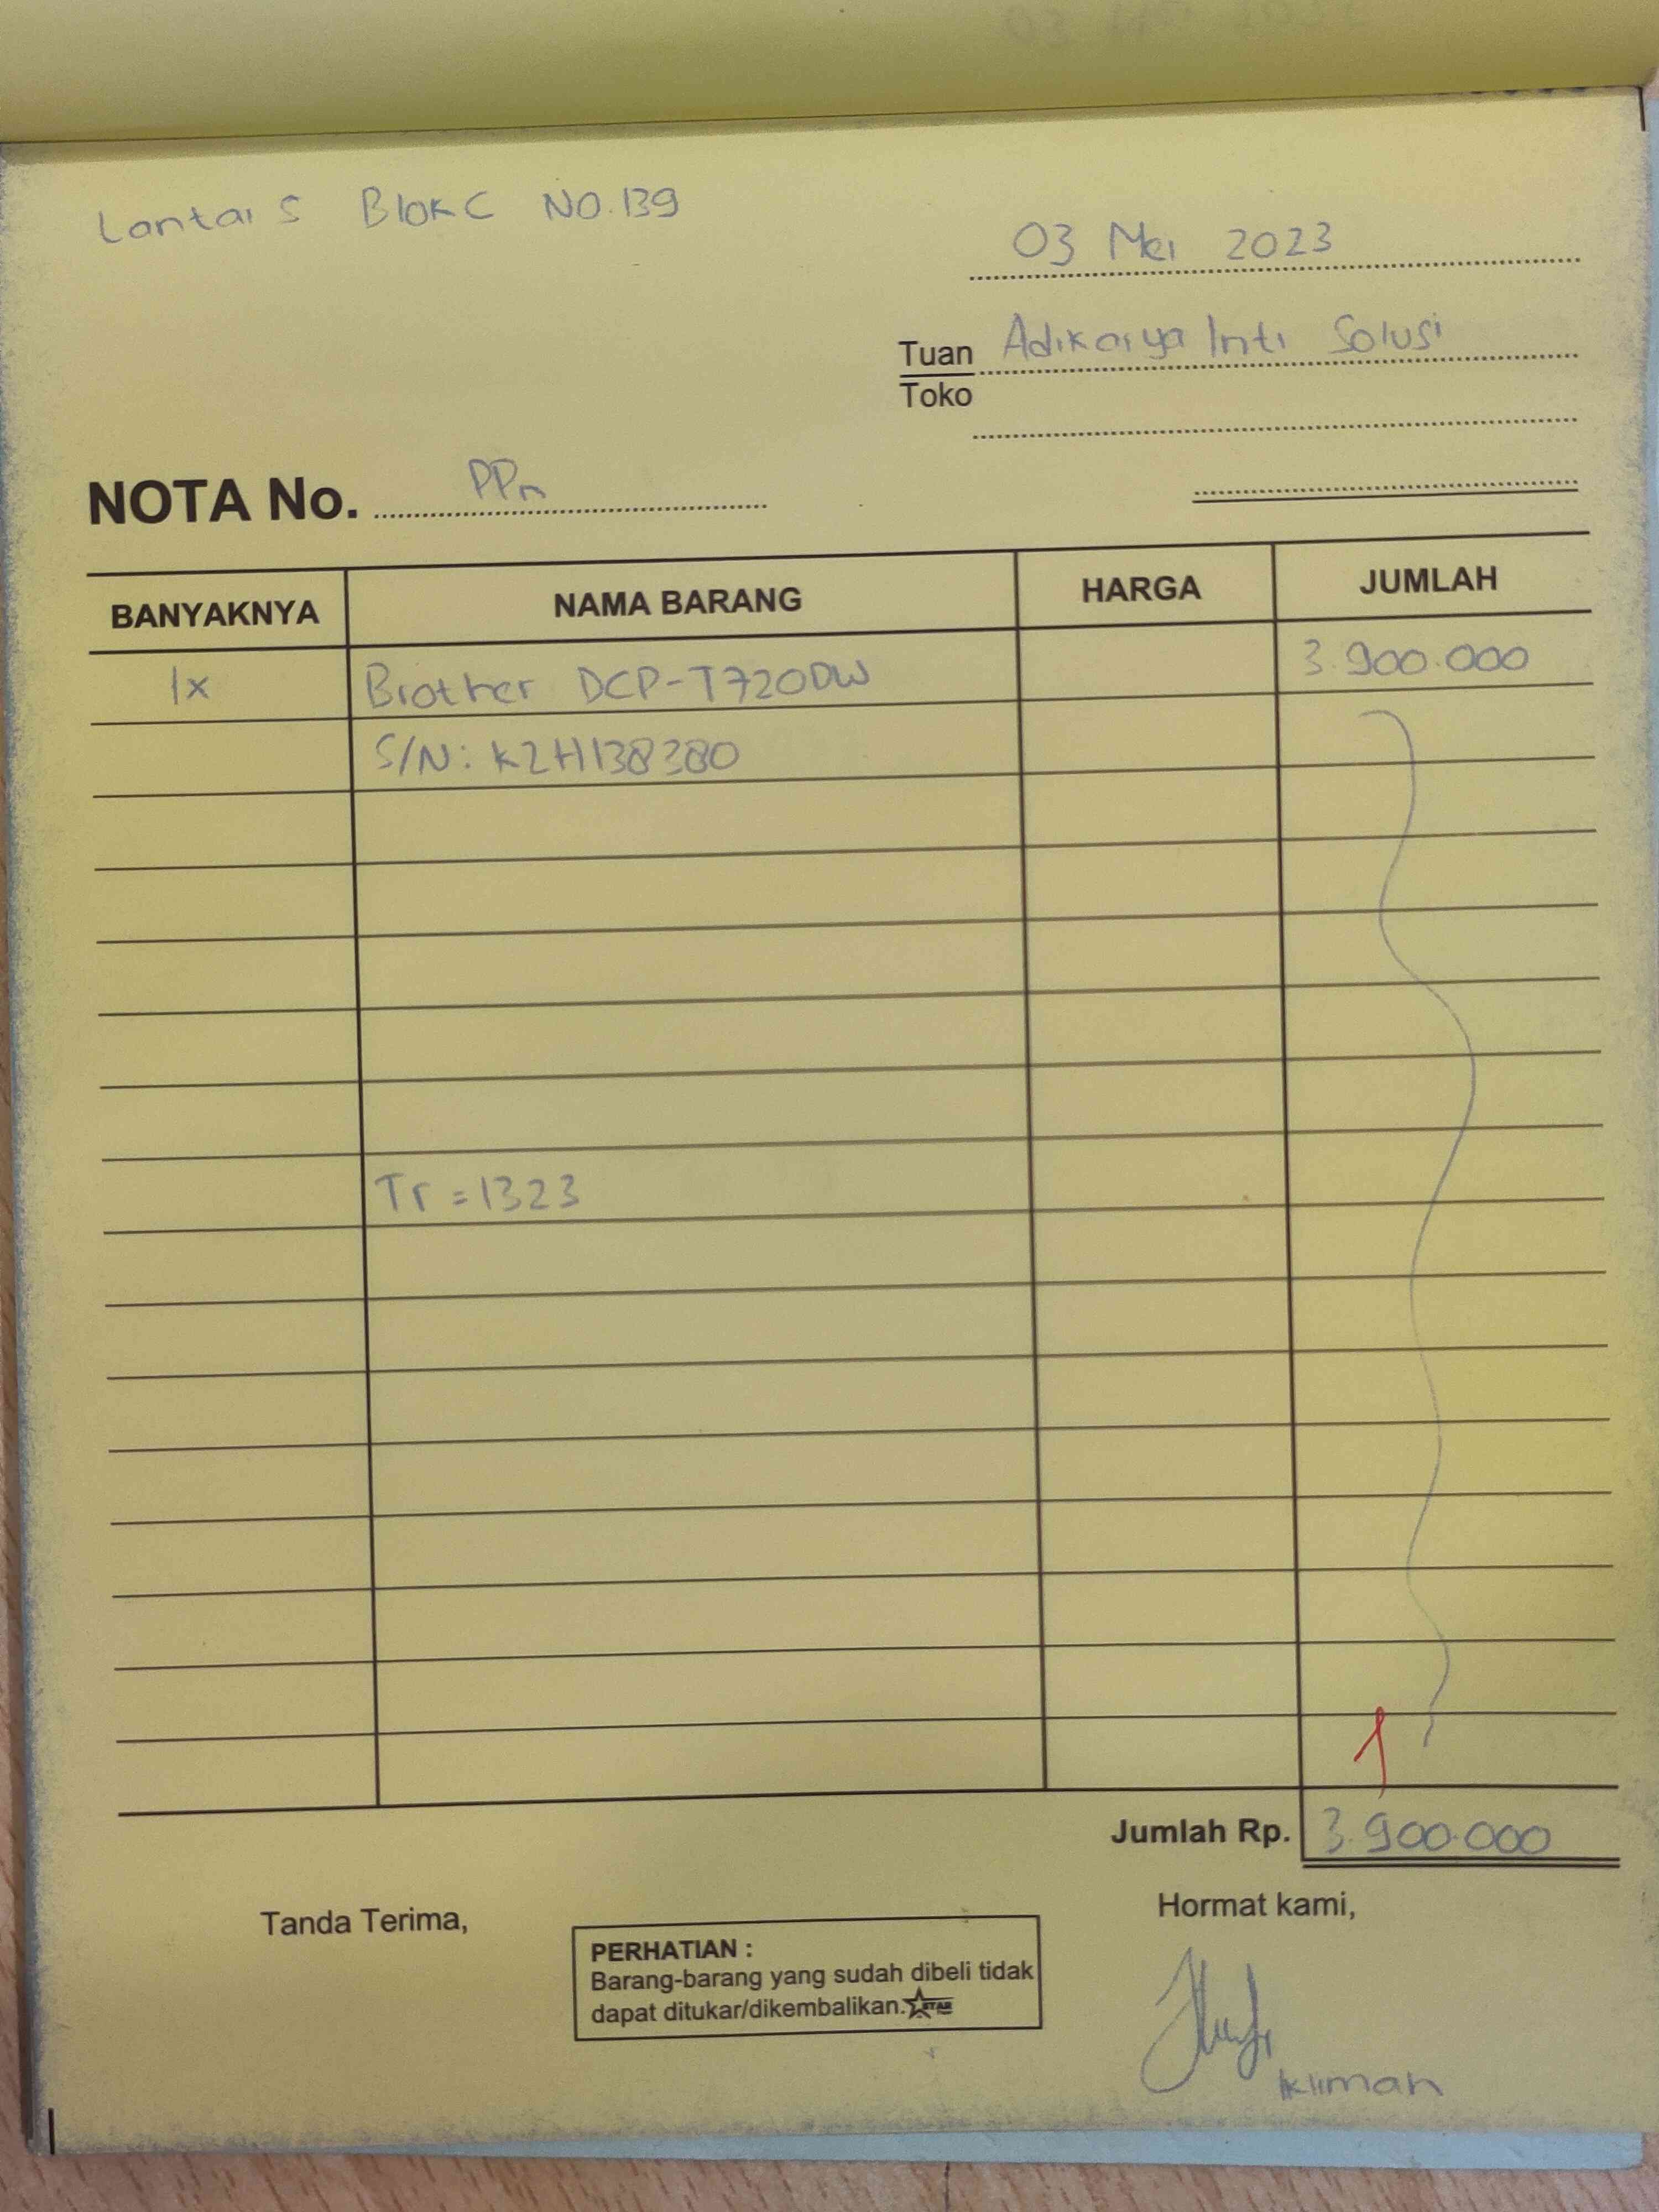 Lantai 5 Blok C NO.139
03 Mei 2023
Tuan Adikarya Inti Solusi
Toko
NOTA No. PPn
BANYAKNYA NAMA BARANG HARGA JUMLAH
1x Brother DCP-T720DW 3.900.000
S/N: K2H138380
Tr = 1323
Jumlah Rp. 3.900.000
Tanda Terima,
Hormat kami,
PERHATIAN :
Barang-barang yang sudah dibeli tidak
dapat ditukar/dikembalikan. STAR